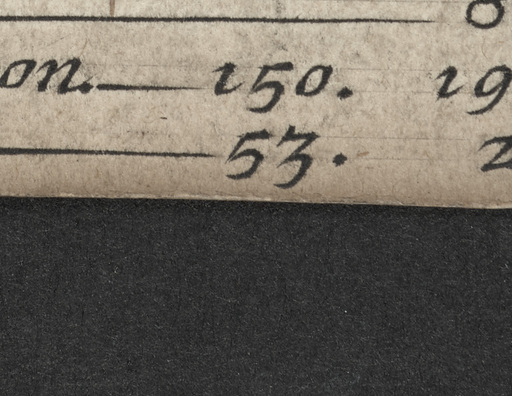 8
on. 150. 19
53. 2